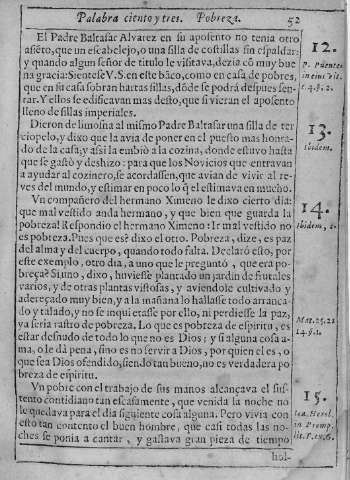 Palabra ciento y tres. Pobreza. 52
El Padre Baltasar Alvarez en su aposento no tenia otro
assẽto, que un escabelejo, o una silla de costillas sin espaldar:
y quando algun señor de titulo le visitava, dezia cõ muy bue
na gracia: Sientese V.S. en este bãco, como en casa de pobres,
que en su casa sobran hartas sillas, dõde se podrá despues sen-
tar. Y ellos se edificavan mas desto, que si vieran el aposento
lleno de sillas imperiales.
12.
Dieron de limosna al mismo Padre Baltasar una silla de ter
ciopelo, y dixo que la avia de poner en el puesto mas honra-
do de la casa, y assi la embió a la cozina, donde estuvo hasta
que se gastò y deshizo: para que los Novicios que entravan
a ayudar al cozinero, se acordassen, que avian de vivir al re-
ves del mundo, y estimar en poco lo q̃ el estimava en mucho.
13.
Ibidem.
Un compañero del hermano Ximeno le dixo cierto dia:
que mal vestido anda hermano, y que bien que guarda la
pobreza! Respondio el hermano Ximeno: Ir mal vestido no
es pobreza. Pues que es? dixo el otro. Pobreza, dize, es paz
del alma y del cuerpo, quando todo falta. Declaró esto, por
este exemplo, otro dia, a uno que le preguntó, que era po-
breça? Si uno, dixo, huviesse plantado un jardin de frutales
varios, y de otras plantas vistosas, y aviendole cultivado y
adereçado muy bien, y a la mañana lo hallasse todo arranca-
do y talado, y no se inquietasse por ello, ni perdiesse la paz,
va seria rastro de pobreza. Lo que es pobreza de espiritu, es
estar desnudo de todo lo que no es Dios; y si alguna cosa a-
ma, o le dà pena, sino es no servir a Dios, por quien el es, o
que sea Dios ofendido, siendo tan bueno, no es verdadera po
breza de espiritu.
14.
Ibidem,
Mat. 25. 21
Un pobre con el trabajo de sus manos alcançava el sus-
tento contidiano tan escasamente, que venida la noche no
le quedava para el dia siguiente cosa alguna. Pero vivia con
esto tan contento el buen hombre, que casi todas las no-
ches se ponia a cantar, y gastava gran pieza de tiempo
15.
hol-